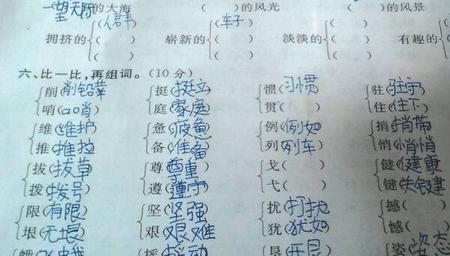 一望无际的大海 ( )的风光 ( )的风景
拥挤的{(人群) 崭新的{(车子) 淡淡的{( ) 有趣的{(
( ) ( ) ( ) (
六、比一比,再组词。(10分)
{削(削铅笔) {挺(挺立) {惯(习惯) {驻(驻守)
哨(口哨) 庭(家庭) 贯( ) 住(住下)
{维(维护) {惫(疲惫) {例(例如) {捎(捎带)
推(推拉) 备(准备) 列(列车) 悄(悄悄)
{拔(拔草) {尊(尊重) {戈( ) {健(健康)
拨(拨号) 遵(遵守) 弋( ) 键(关键)
{限(有限) {坚(坚强) {扰(打扰) {撼(
垠(无垠) 艰(艰难) 犹(犹如) 憾(
摇(摇动) 垦(开垦) 姿(姿态)